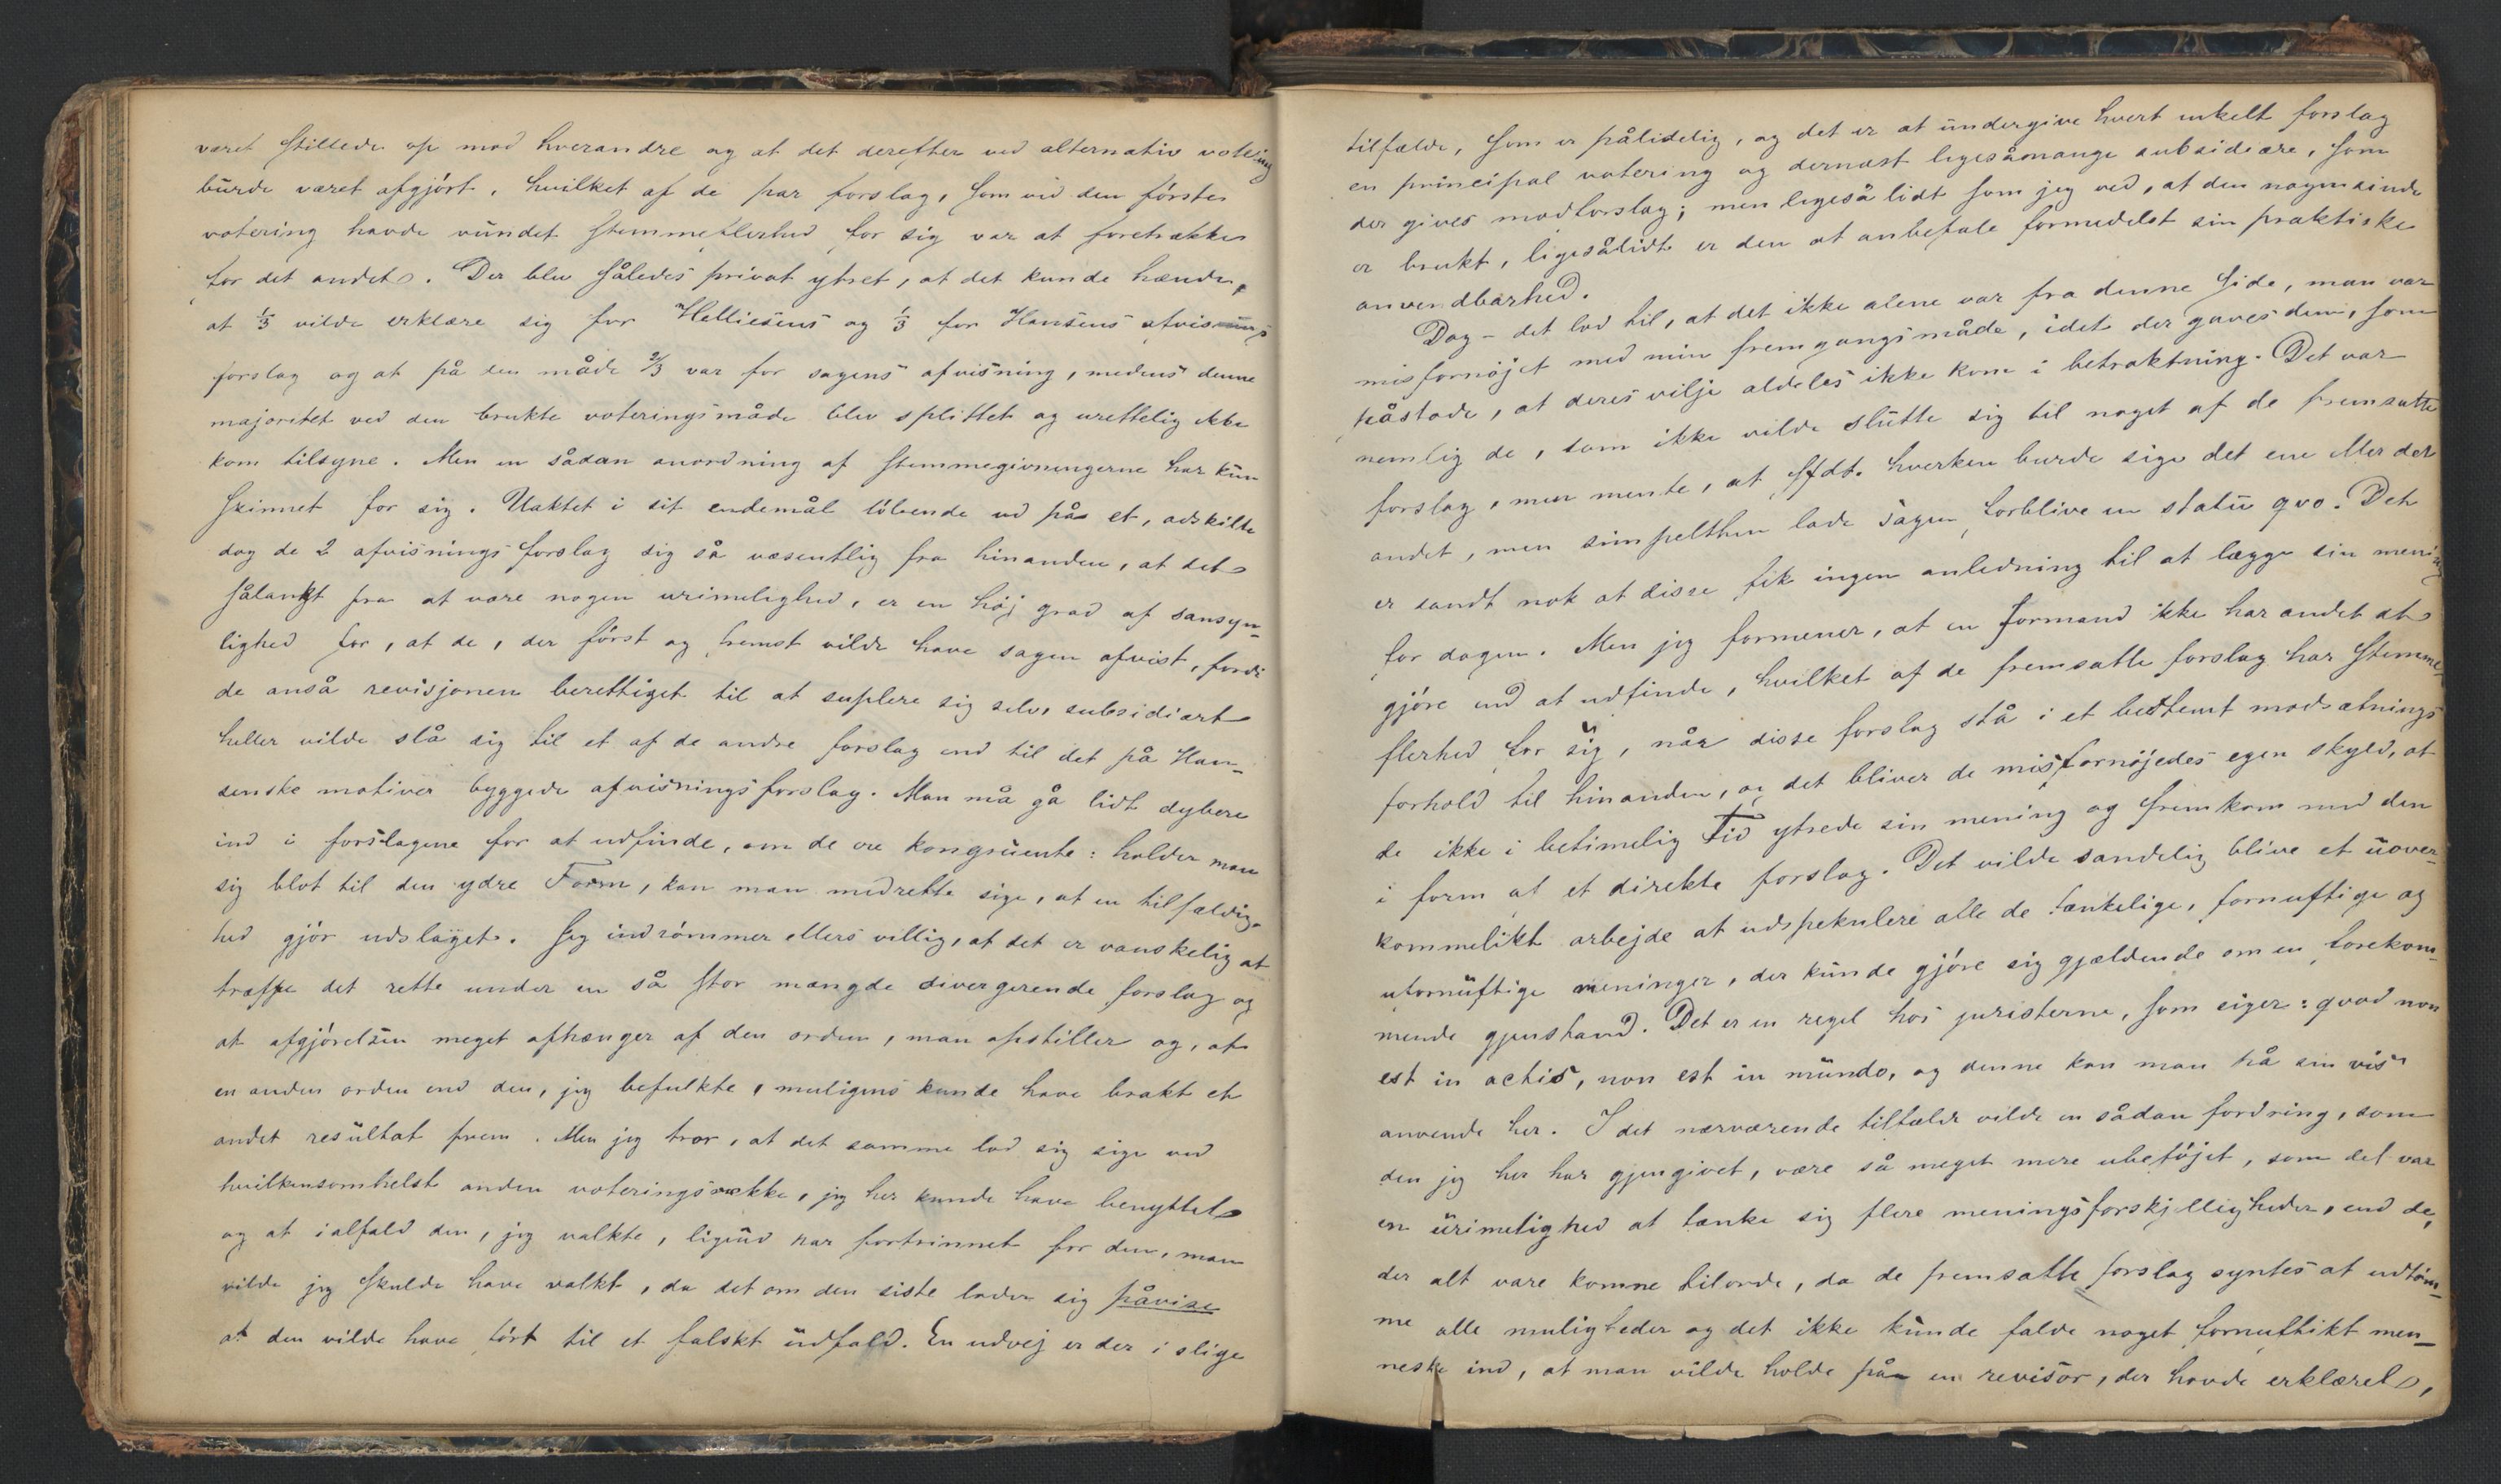 været stillede op mod hverandre og at det derefter ved alternativ votering
burde været afgjórt, hvilket af de par forslag, som vid den fórste
votering havde vundet stemmeflerhed for sig var at foretrække
for det andet. Der blev således privat ytret, at det kunde hænde,
at 1/3 vilde erklære sig for Helliesens og 1/3 for Hansens afvisnings
forslag og at på den måde 2/3 var for sagens afvisning, medens denne
majoritet ved den brukte voteringsmåde blev splittet og urettelig ikke
kom tilsyne. Men en sådan anordning af stemmegivningerne har kun
skinnet for sig. Uaktet i sit endemål lóbende ud på et, adskilte
dog de 2 afvisningsforslag sig så væsentlig fra hinanden, at det
sålangt fra at være nogen urimelighed, er en høj grad af sansyn-
lighed for, at de, der fórst og fremst vilde have sagen afvist, fordi
de anså revisjonen berettiget til at suplere sig selv, subsidiært
heller vilde slå sig til et af de andre forslag end til det på Han-
senske motiver byggede afvisningsforslag. Man må gå lidt dybere
ind i forslagene for at udfinde, om de ere kongruente: holder man
sig blot til den ydre Form, kan man medrette sige, at en tilfældig-
hed gjór udslaget. Jeg indrómmer ellers villig, at det er vanskelig at
træffe det rette under en så stor mængde divergerende forslag og
at afgjórelsen meget afhænger af den orden, man opstiller og, at
en anden orden end den, jeg befulkte, muligens kunde have brakt et
andet resultat frem. Men jeg tror, at det samme lod sig sige ved
hvilkensomhelst anden voteringsrække, jeg her kunde have benyttet
og at ialfald den, jeg valkte, ligeud har fortrinnet for den, man
vilde jeg skulde have valkt, da det om den siste lader sig påvise
at den vilde have fórt til et falskt udfald. En udvej er der i slige
tilfælde, som er pålidelig, og det er at undergive hvert enkelt forslag
en principal votering og dernæst ligesåmange subsidiære, som
der gives modforslag; men ligeså lidt som jeg ved, at den nogensinde
er brukt, ligesålidt er den at anbefale formedelst sin praktiske
anvendbarhed.
Dog - det lod til, at det ikke alene var fra denne side, man var
misfornøjet med min fremgangsmåde, idet der gaves dem, som
påstode, at deres vilje aldeles ikke kom i betraktning. Det var
nemlig de, som ikke vilde slutte sig til noget af de fremsatte
forslag, men mente, at Sfdt. hverken burde sige det ene eller det
andet, men simpelthen lade sagen forblive in statu qvo. Det
er sandt nok at disse fik ingen anledning til at lægge sin mening
for dagen. Men jeg formener, at en formand ikke har andet at
gjóre end at udfinde, hvilket af de fremsatte forslag har stemme-
flerhed for sig, når disse forslag stå i et bestemt modsætnings
forhold til hinanden, og det bliver de misfornøjedes egen skyld, at
de ikke i betimelig Tid ytrede sin mening og fremkom med den
i form af et direkte forslag. Det vilde sandelig blive et uover-
kommelikt arbejde at udspekulere alle de tænkelige, fornuftige og
ufornuftige meninger, der kunde gjóre sig gjældende om en forekom-
mende gjenstand. Det er en regel hos juristerne, som siger: qvod non
est in actis, non est in mundo, og denne kan man på sin vis
anvende her. I det nærværende tilfælde vilde en sådan fordring, som
den jeg her har gjengivet, være så meget mere ubefójet, som det var
en urimelighed at tænke sig flere meningsforskjelligheder, end de,
der alt vare komne tilorde, da de fremsatte forslag syntes at udtóm-
me alle muligheder og det ikke kunde falde noget fornuftikt men-
neske ind, at man vilde holde på en revisor, der havde erklæret,